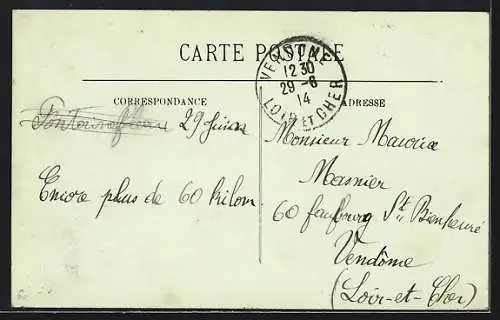 CARTE POSTALE
VENDOME
12 30
29 -6
14
LOIR ET CHER
CORRESPONDANCE
ADRESSE
29 Juin
Encore plus de 60 kilom.
Monsieur Maurice
Masnier
60 faubourg St Bienheuré
Vendôme
(Loir-et-Cher)